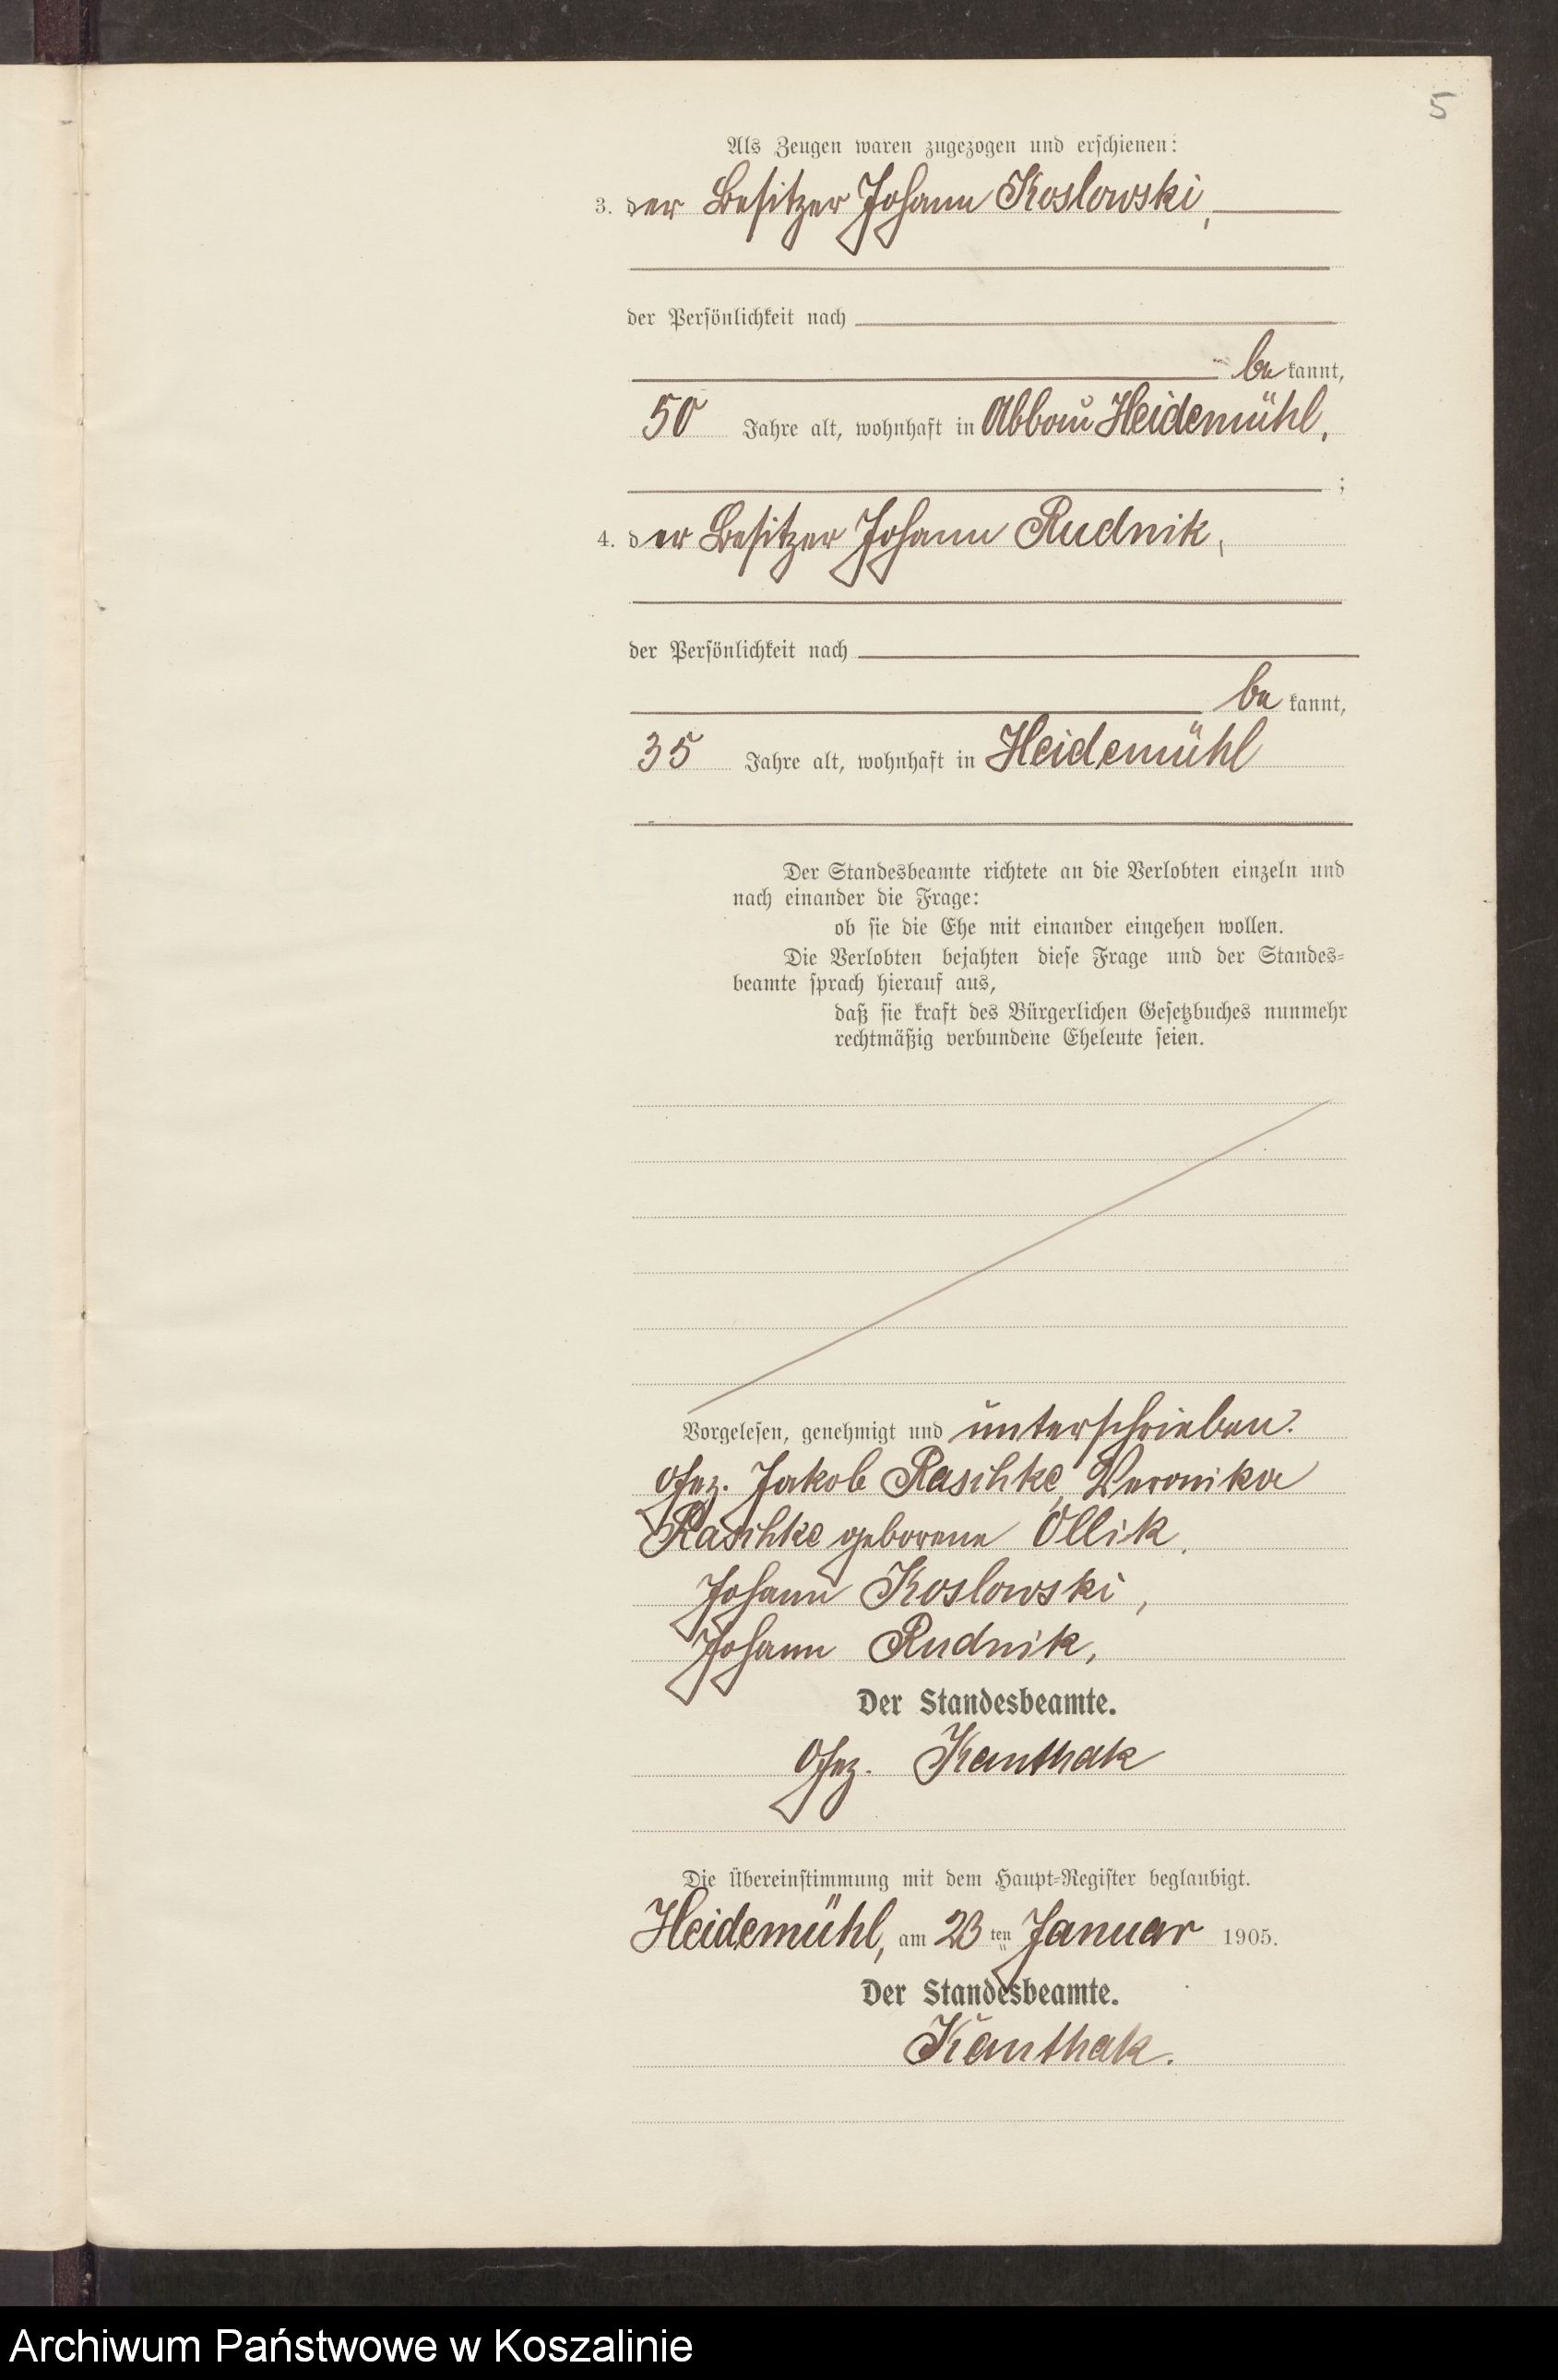 5
Als Zeugen waren zugezogen und erschienen:
3. der Besitzer Johann Koslowski,
der Persönlichkeit nach
bekannt,
50 Jahre alt, wohnhaft in Abbau Heidemühl,
;
4. der Besitzer Johann Rudnik,
der Persönlichkeit nach
bekannt,
35 Jahre alt, wohnhaft in Heidemühl
Der Standesbeamte richtete an die Verlobten einzeln und
nach einander die Frage:
ob sie die Ehe mit einander eingehen wollen.
Die Verlobten bejahten diese Frage und der Standes-
beamte sprach hierauf aus,
daß sie kraft des Bürgerlichen Gesetzbuches nunmehr
rechtmäßig verbundene Eheleute seien.
Vorgelesen, genehmigt und unterschrieben.
Gez. Jakob Raschke, Veronika
Raschke geborene Ollik,
Johann Koslowski,
Johann Rudnik,
Der Standesbeamte.
Gez. Kanthak
Die Übereinstimmung mit dem Haupt-Register beglaubigt.
Heidemühl, am 23ten Januar 1905.
Der Standesbeamte.
Kanthak.
Archiwum Państwowe w Koszalinie